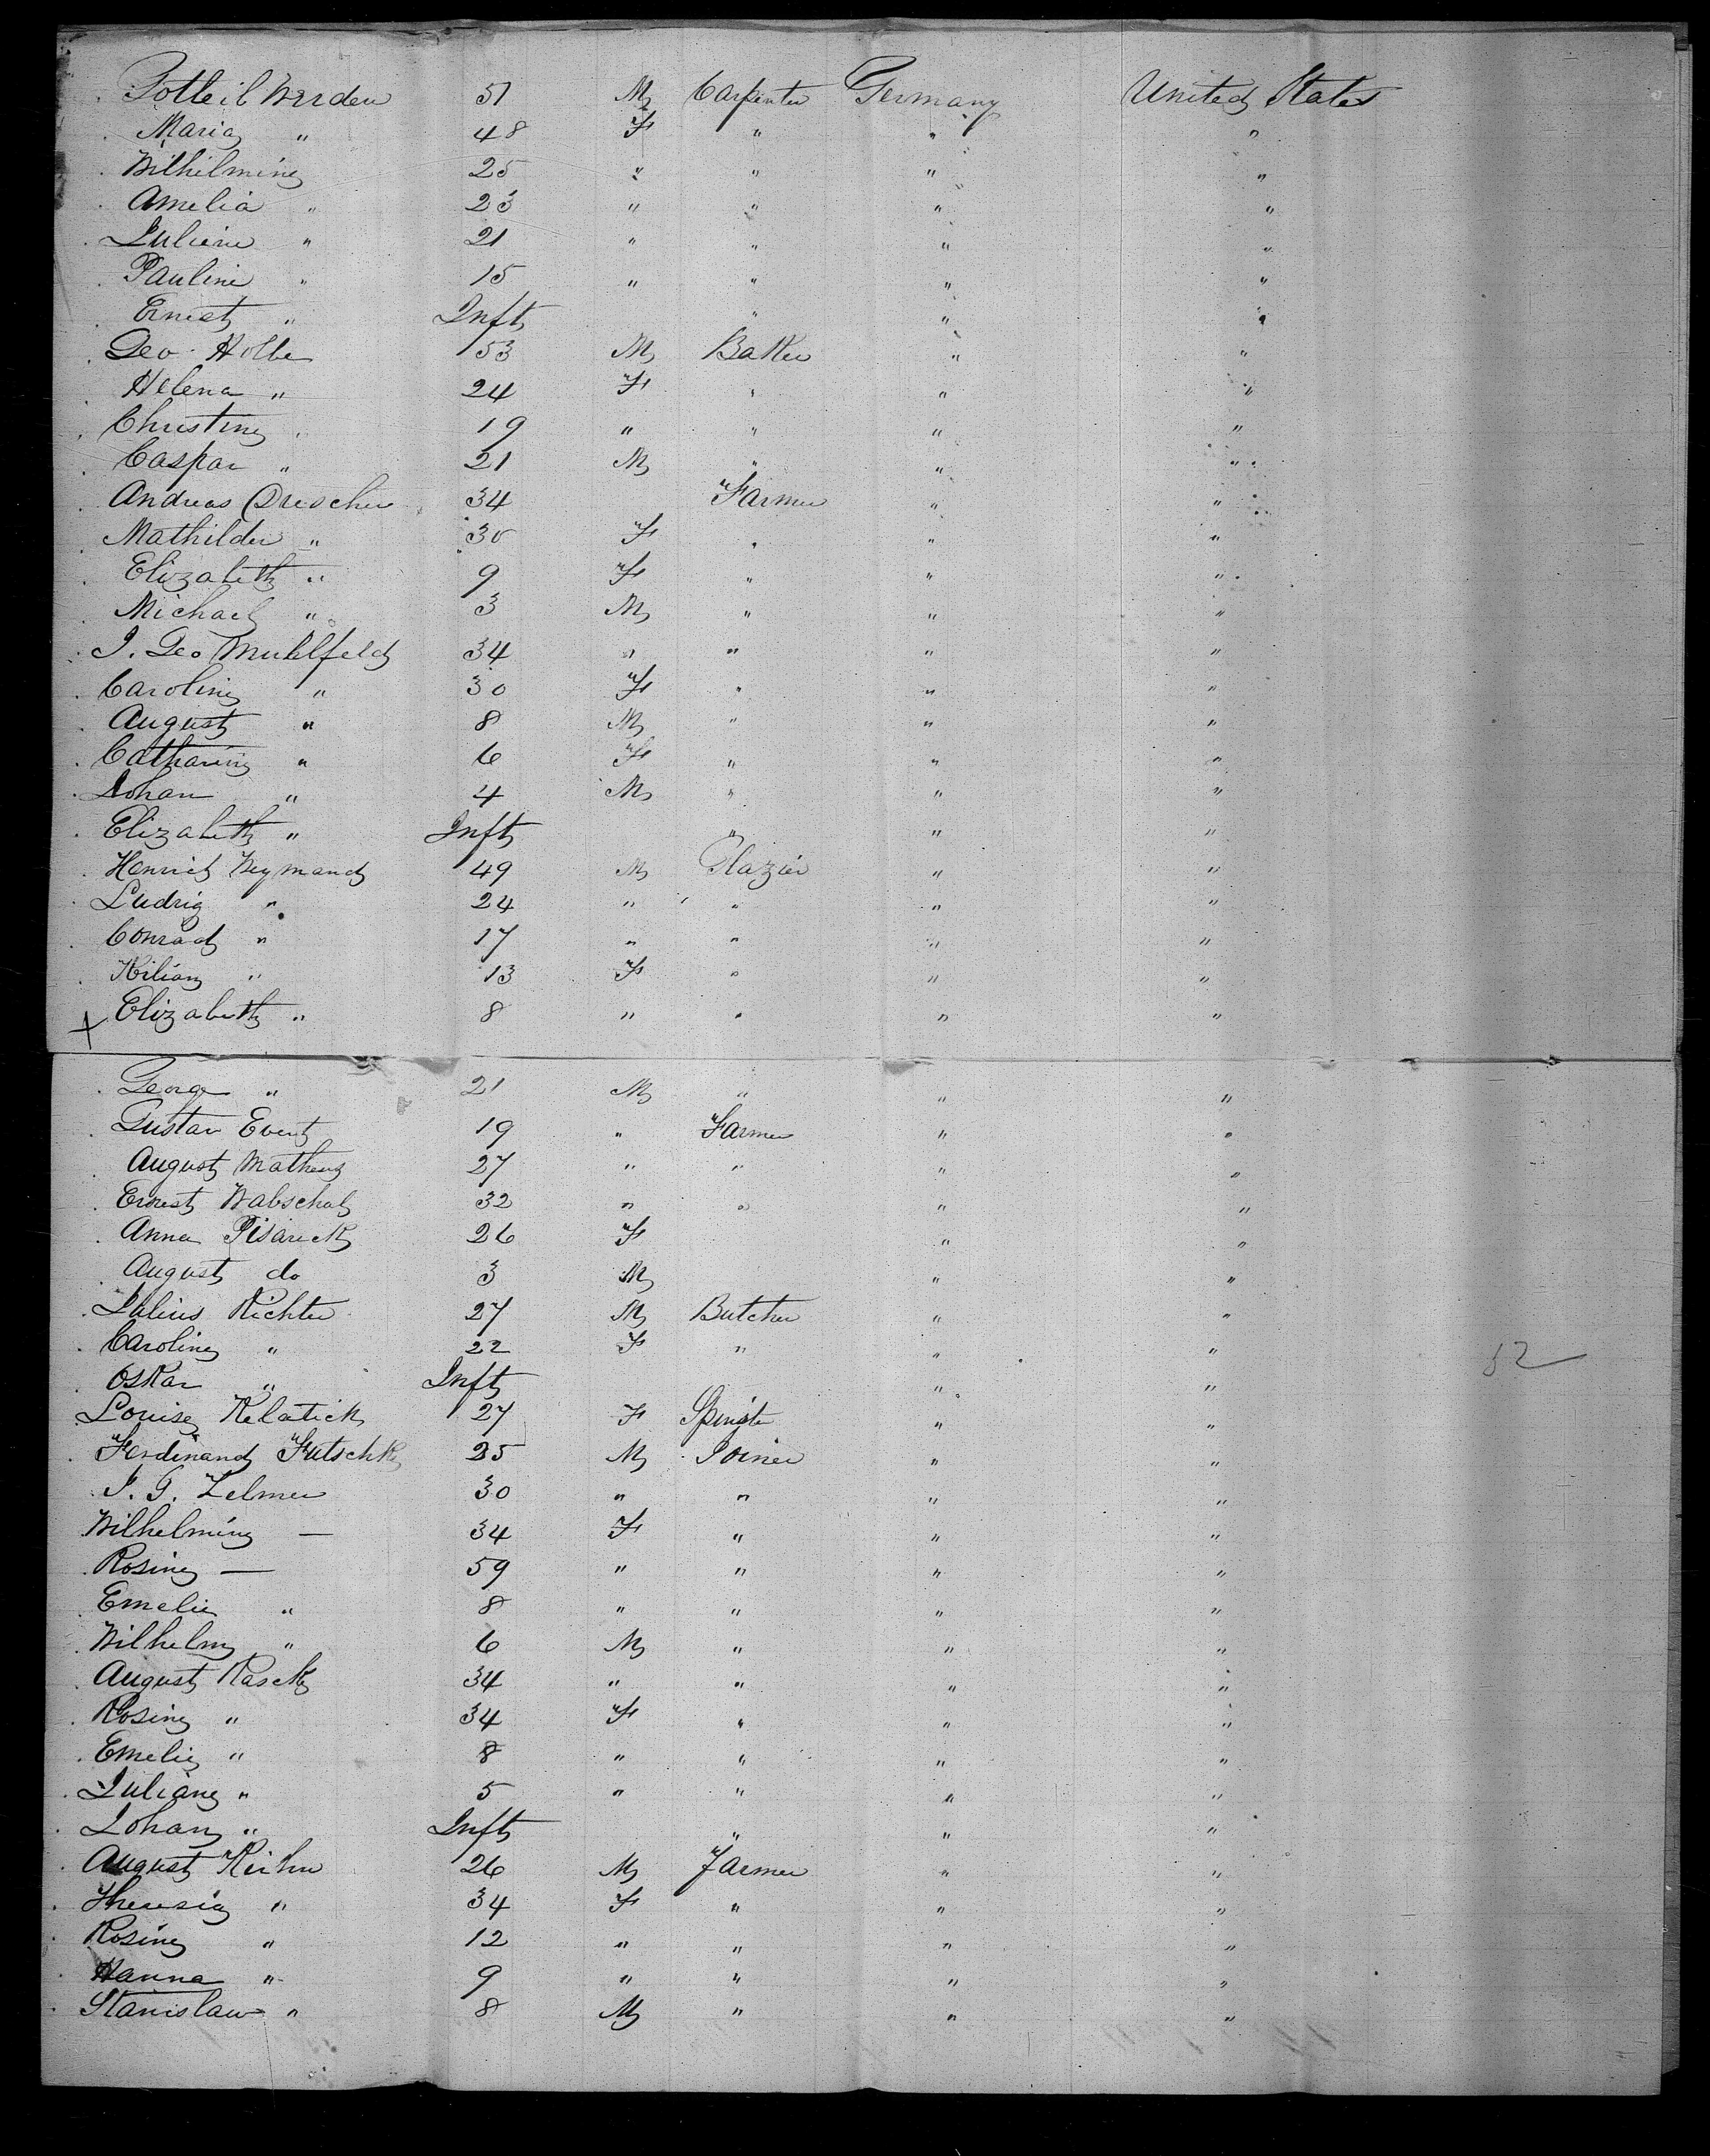 Gotleib Werden 51 M Carpenter Germany United States
Maria " 48 F " " "
Wilhilmine 25 " " " "
Amelia " 23 " " " "
Juliane " 21 " " " "
Pauline " 15 " " " "
Ernest " Inft " " "
Geo Holbe 53 M Baker " "
Helena " 24 F " " "
Christine " 19 " " " "
Caspar " 21 M " " "
Andreas Drescher 34 Farmer " "
Mathilde " 30 F " " "
Elizabeth " 9 F " " "
Michael " 3 M " " "
J. Geo Muhlfeld 34 " " " "
Caroline " 30 F " " "
August " 8 M " " "
Catharine " 6 F " " "
Johan " 4 M " " "
Elizabeth " Inft " " "
Henrich Weymand 49 M Glazier " "
Ludrig " 24 " " " "
Conrad " 17 " " " "
Kilian " 13 F " " "
X Elizabeth " 8 " " " "
George " 21 M " " "
Gustav Evert 19 " Farmer " "
August 27 " " " "
Ernest 32 " " " "
Anna Pisareck 26 F " "
August do 3 M " "
Julius Richter 27 M Butcher " "
Caroline " 22 F " " " 52
Oskar " Inft " "
Louise Kelatick 27 F Spinster " "
Ferdinand Futschke 25 M Joiner " "
J. G. Zelmer 30 " " " "
Wilhelmine — 34 F " " "
Rosine — 59 " " " "
Emelie " 8 " " " "
Wilhelm " 6 M " " "
August Raseke 34 " " " "
Rosine " 34 F " " "
Emelie " 8 " " " "
Juliane " 5 " " " "
Johan " Inft " " "
August 26 M Farmer " "
Theresia " 34 F " " "
Rosine " 12 " " " "
Hanna " 9 " " " "
Stanislaw " 8 M " " "